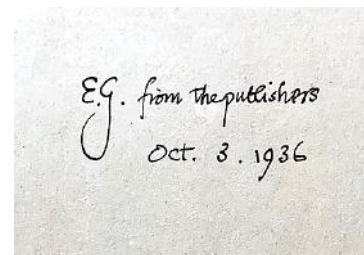 E.G. from the publishers
Oct. 3. 1936